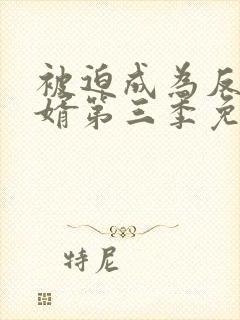 被迫成为反
婿第三季免
特尼